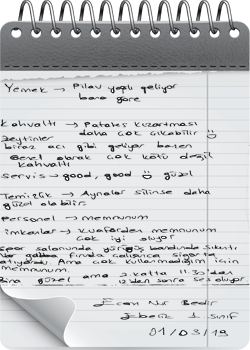 Yemek → Pilav yağlı geliyor
bana göre
Kahvaltı → Patates kızartması
daha çok çıkabilir :)
Zeytinler
biraz acı gibi geliyor bazen
Genel olarak çok kötü değil
kahvaltı
Servis → good, good :) güzel
Temizlik → Aynalar silinse daha
güzel olabilir
Personel → memnunum
imkanlar → Kuaförden memnunum
çok iyi oluyor
Spor salonunda yürüyüş bandında sıkıntı
Var galiba fırında çalışınca sigorta
atıyordu. Ama çok kullanmadığım için
memnunum
Bina güzel ama 2. katta 11.30'dan
12'den sonra ses oluyor
Ecem Nur Bedir
Ebelik 1. sınıf
01/03/19